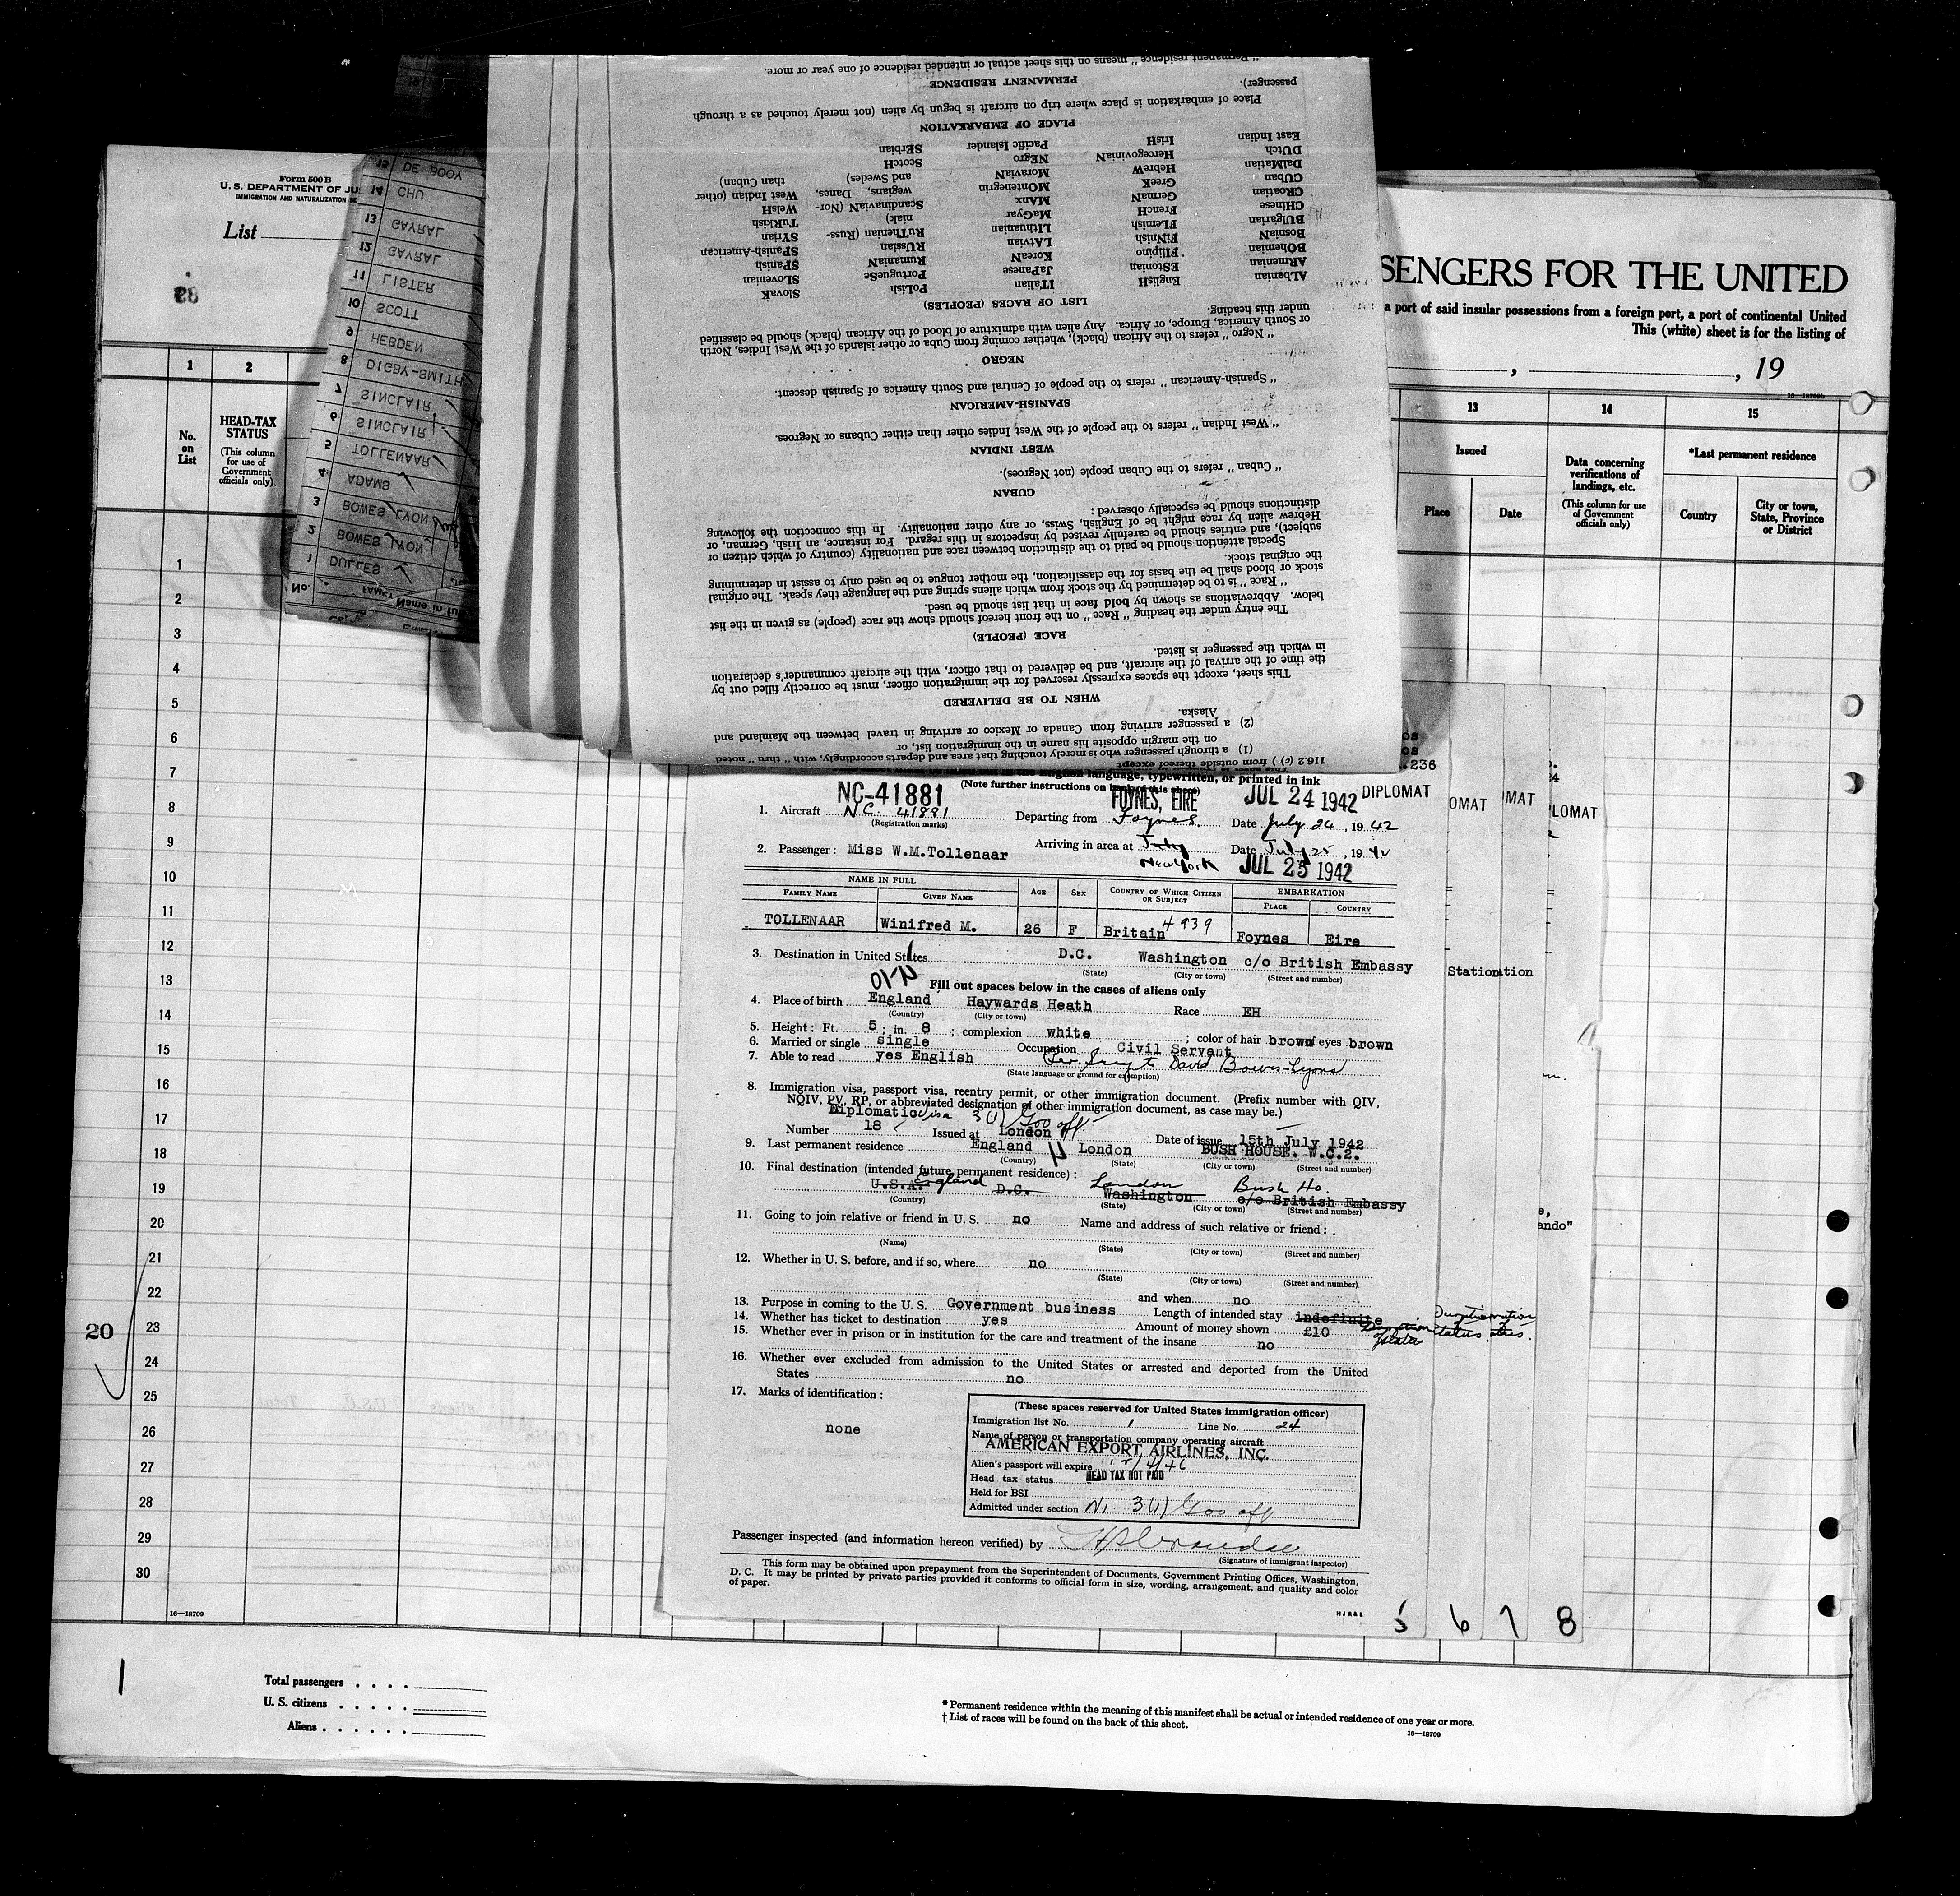 Form 500 B
U. S. DEPARTMENT OF JUS
IMMIGRATION AND NATURALIZATION SE
List
1 2
No. on List
HEAD-TAX STATUS
(This column for use of Government officials only)
1
2
3
4
5
6
7
8
9
10
11
12
13
14
15
16
17
18
19
20
21
22
23
24
25
26
27
28
29
30
20
16—18709
Total passengers . . . .
U. S. citizens . . . . .
Aliens . . . . . .
* Permanent residence within the meaning of this manifest shall be actual or intended residence of one year or more.
† List of races will be found on the back of this sheet.
16—18709
No. FAMILY Name in full
1 DULLES
2 BOWES LYON
3 BOWES LYON
4 ADAMS
5 TOLLENAAR
6 SINCLAIR
7 SINCLAIR
8 DIGBY-SMITH
9 HEBDEN
10 SCOTT
11 LISTER
12 GAYRAL
13 GAYRAL
14 CHU
15 DE BOOY
SENGERS FOR THE UNITED
a port of said insular possessions from a foreign port, a port of continental United
This (white) sheet is for the listing of
, , 19
13 14 15
Issued
Place Date
Data concerning verifications of landings, etc.
(This column for use of Government officials only)
*Last permanent residence
Country
City or town, State, Province or District
116.2 (c) ) from outside thereof except
(1) a through passenger who is merely touching that area and departs accordingly, with " thru " noted
on the margin opposite his name in the immigration list, or
(2) a passenger arriving from Canada or Mexico or arriving in travel between the Mainland and
Alaska.
WHEN TO BE DELIVERED
This sheet, except the spaces expressly reserved for the immigration officer, must be correctly filled out by
the time of the arrival of the aircraft, and be delivered to that officer, with the aircraft commander's declaration
in which the passenger is listed.
RACE (PEOPLE)
The entry under the heading " Race " on the front hereof should show the race (people) as given in the list
below. Abbreviations as shown by bold face in that list should be used.
" Race " is to be determined by the stock from which aliens spring and the language they speak. The original
stock or blood shall be the basis for the classification, the mother tongue to be used only to assist in determining
the original stock.
Special attention should be paid to the distinction between race and nationality (country of which citizen or
subject), and entries should be carefully revised by inspectors in this regard. For instance, an Irish, German, or
Hebrew alien by race might be of English, Swiss, or any other nationality. In this connection the following
distinctions should be especially observed :
CUBAN
" Cuban " refers to the Cuban people (not Negroes).
WEST INDIAN
" West Indian " refers to the people of the West Indies other than either Cubans or Negroes.
SPANISH-AMERICAN
" Spanish-American " refers to the people of Central and South America of Spanish descent.
NEGRO
" Negro " refers to the African (black), whether coming from Cuba or other islands of the West Indies, North
or South America, Europe, or Africa. Any alien with admixture of blood of the African (black) should be classified
under this heading.
LIST OF RACES (PEOPLES)
ALbanian EnglisH ITalian PoLish SlovaK
ARmenian EStonian JaPanese PortugueSe SLovenian
BOhemian FIlipino KoreaN RumaniaN SPanish
BosniaN FiNnish LAtvian RUssian SPanish-American
BUlgarian FLemish LIthuanian RuThenian (Russ- SYrian
CHinese FrencH MaGyar niak) TuRkish
CRoatian GermaN MAnx ScandinaviaN (Nor- WelsH
CUban GreeK MOntenegrin wegians, Danes, West Indian (other
DalMatian HebreW MoraviaN and Swedes) than Cuban)
DUtch HercegoviniaN NEgro ScotcH
East Indian IrisH Pacific Islander SErbian
PLACE OF EMBARKATION
Place of embarkation is place where trip on aircraft is begun by alien (not merely touched as a through
passenger).
PERMANENT RESIDENCE
" Permanent residence " means on this sheet actual or intended residence of one year or more.
236
English language, typewritten, or printed in ink
(Note further instructions on back of this sheet)
NC-41881 FOYNES, EIRE JUL 24 1942 DIPLOMAT
OMAT MAT PLOMAT
1. Aircraft N.C. 41881 Departing from Foynes Date July 24, 1942
(Registration marks)
2. Passenger: Miss W.M.Tollenaar Arriving in area at New York Date July 25, 1942
JUL 25 1942
NAME IN FULL AGE SEX COUNTRY OF WHICH CITIZEN OR SUBJECT EMBARKATION
FAMILY NAME GIVEN NAME PLACE COUNTRY
TOLLENAAR Winifred M. 26 F Britain 4939 Foynes Eire
3. Destination in United States D.C. Washington c/o British Embassy
(State) (City or town) (Street and number)
Station tion
Fill out spaces below in the cases of aliens only
4. Place of birth England Haywards Heath Race EH
(Country) (City or town)
5. Height: Ft. 5; in. 8; complexion white; color of hair brown of eyes brown
6. Married or single single Occupation Civil Servant
7. Able to read yes English David Bowes-Lyons
(State language or ground for exemption)
8. Immigration visa, passport visa, reentry permit, or other immigration document. (Prefix number with QIV,
NQIV, PV, RP, or abbreviated designation of other immigration document, as case may be.)
Diplomatic visa 3(1) Gov off
Number 18 Issued at London Date of issue 15th July 1942
9. Last permanent residence England London BUSH HOUSE. W.C.2.
(Country) (State) (City or town) (Street and number)
10. Final destination (intended future permanent residence):
England London Bush Ho.
U.S.A. D.C. Washington c/o British Embassy
(Country) (State) (City or town) (Street and number)
11. Going to join relative or friend in U. S. no Name and address of such relative or friend:
(Name) (State) (City or town) (Street and number)
12. Whether in U. S. before, and if so, where no
(State) (City or town) (Street and number)
and when no
13. Purpose in coming to the U. S. Government business Length of intended stay indefinite
14. Whether has ticket to destination yes Amount of money shown £10
15. Whether ever in prison or in institution for the care and treatment of the insane no
16. Whether ever excluded from admission to the United States or arrested and deported from the United
States no
17. Marks of identification:
none
(These spaces reserved for United States immigration officer)
Immigration list No. 1 Line No. 24
Name of person or transportation company operating aircraft
AMERICAN EXPORT AIRLINES, INC.
Alien's passport will expire
Head tax status HEAD TAX NOT PAID
Held for BSI
Admitted under section 3(1) Gov off
Passenger inspected (and information hereon verified) by
(Signature of immigrant inspector)
This form may be obtained upon prepayment from the Superintendent of Documents, Government Printing Offices, Washington,
D. C. It may be printed by private parties provided it conforms to official form in size, wording, arrangement, and quality and color
of paper.
5 6 7 8
1